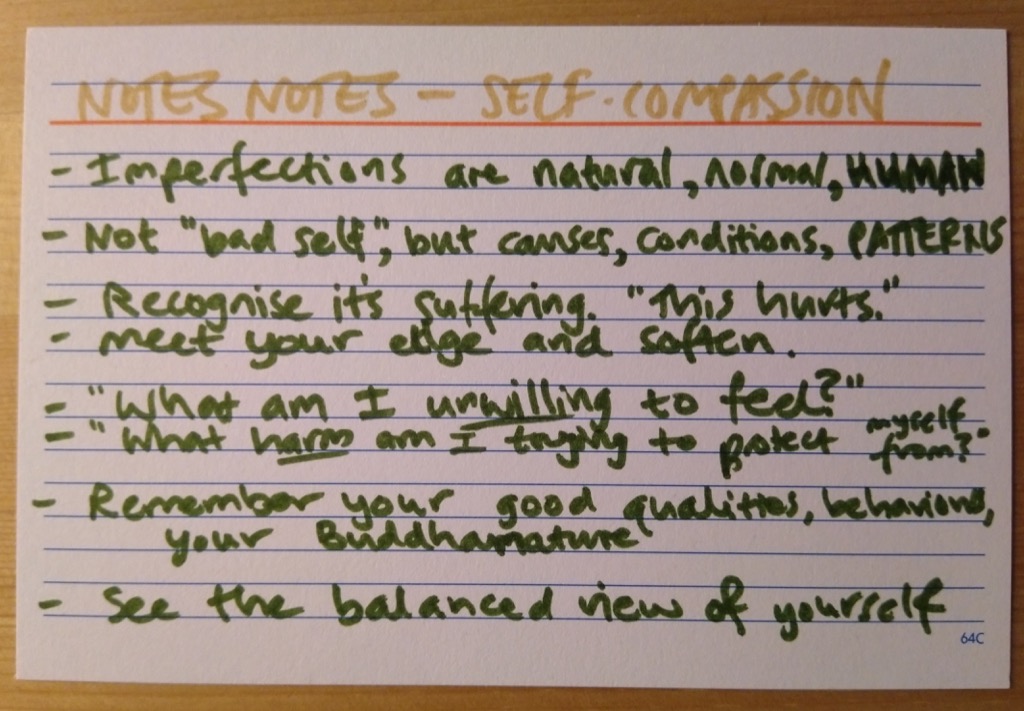 NOTES NOTES - SELF-COMPASSION
- Imperfections are natural, normal, HUMAN
- Not "bad self", but causes, conditions, PATTERNS
- Recognise it's suffering. "This hurts."
- meet your edge and soften.
- "What am I unwilling to feel?"
- "What harm am I trying to protect myself from?"
- Remember your good qualities, behaviours,
your Buddhanature
- See the balanced view of yourself
64C